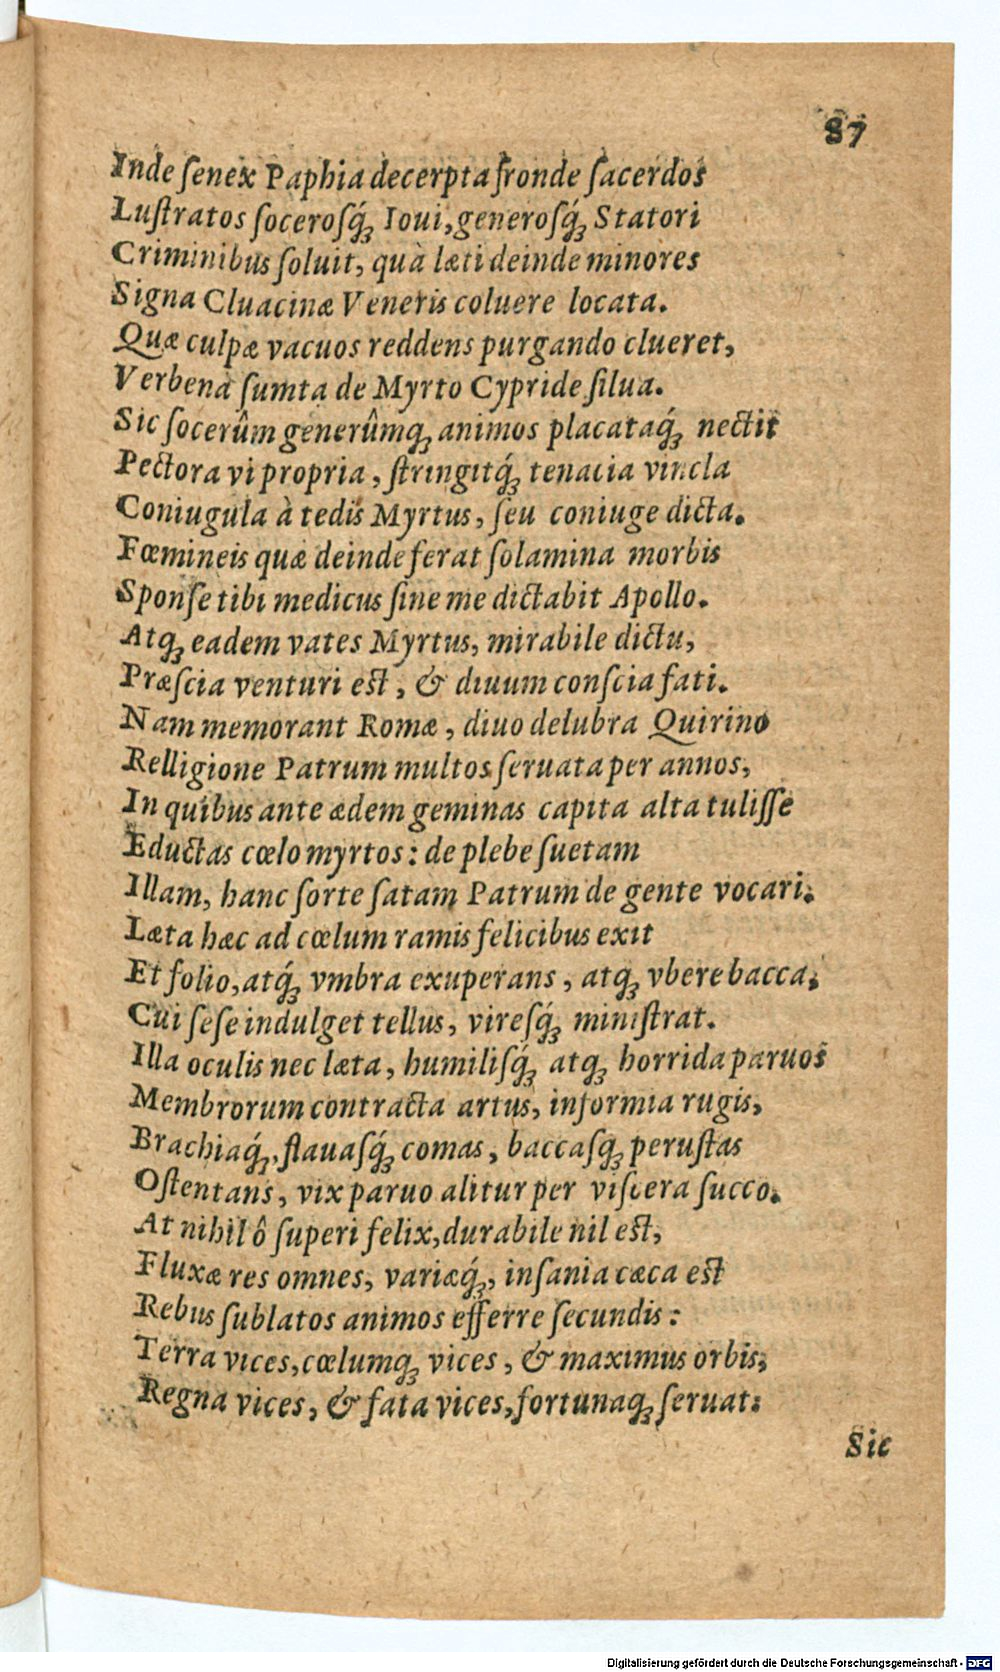 87
Inde ſenex Paphia decerpta fronde ſacerdos
Luſtratos ſoceroſq́ꝫ Ioui, generoſq́ꝫ Statori
Criminibus ſoluit, quà læti deinde minores
Signa Cluacinæ Veneris coluere locata.
Quæ culpæ vacuos reddens purgando clueret,
Verbena ſumta de Myrto Cypride ſilua.
Sic ſocerûm generûmqꝫ animos placataq́ꝫ nectit
Pectora vi propria, ſtringitq́ꝫ tenacia vincla
Coniugula à tedis Myrtus, ſeu coniuge dicta.
Fœmineis quæ deinde ferat ſolamina morbis
Sponſe tibi medicus ſine me dictabit Apollo.
Atqꝫ eadem vates Myrtus, mirabile dictu,
Præſcia venturi est, & diuum conſcia fati.
Nam memorant Romæ, diuo delubra Quirino
Relligione Patrum multos ſeruata per annos,
In quibus ante ædem geminas capita alta tuliſſe
Eductas cœlo myrtos: de plebe ſuetam
Illam, hanc ſorte ſatam Patrum de gente vocari.
Læta hæc ad cœlum ramis felicibus exit
Et folio, atq́ꝫ vmbra exuperans, atqꝫ vbere bacca,
Cui ſeſe indulget tellus, vireſq́ꝫ miniſtrat.
Illa oculis nec læta, humiliſq́ꝫ atqꝫ horrida paruos
Membrorum contracta artus, informia rugis,
Brachiaq́ꝫ, flauaſq́ꝫ comas, baccaſqꝫ peruſtas
Oſtentans, vix paruo alitur per viſcera ſucco.
At nihil ô ſuperi felix, durabile nil est,
Fluxæ res omnes, variæq́ꝫ, inſania cæca est
Rebus ſublatos animos efferre ſecundis:
Terra vices, cœlumqꝫ vices, & maximus orbis,
Regna vices, & fata vices, fortunaqꝫ ſeruat:
Sic
Digitalisierung gefördert durch die Deutsche Forschungsgemeinschaft - DFG